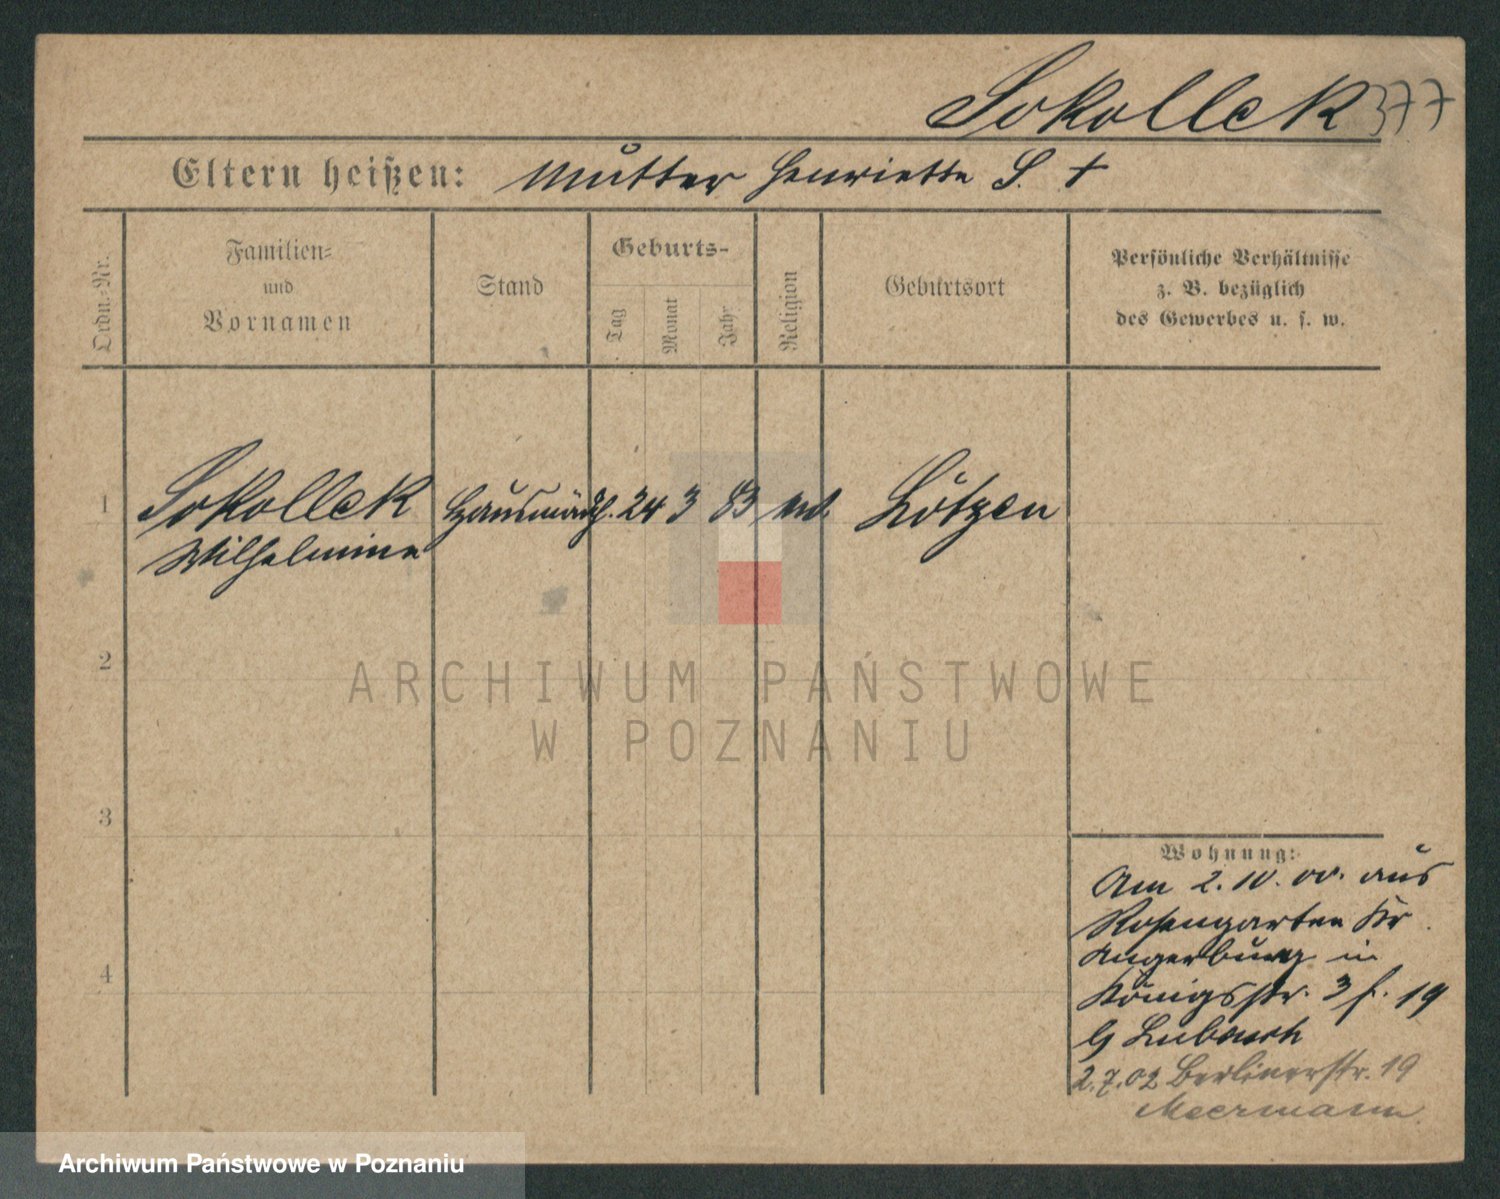 Sokolleck 377
Eltern heißen: Mutter Henriette S. †
Ordn.-Nr.
Familien-
und
Vornamen
Stand
Geburts-
Tag
Monat
Jahr
Religion
Geburtsort
Persönliche Verhältnisse
z. B. bezüglich
des Gewerbes u. s. w.
1 Sokolleck Hausmädch. 24 3 83 Lötzen
Wilhelmine
2
3
4
ARCHIWUM PAŃSTWOWE
W POZNANIU
Wohnung:
Am 2. 10. 00. aus
Rosengarten Kr
Angerburg in
Königsstr. 3 f. 19
b Lubasch
2.7.02 Berlinerstr. 19
Meermann
Archiwum Państwowe w Poznaniu